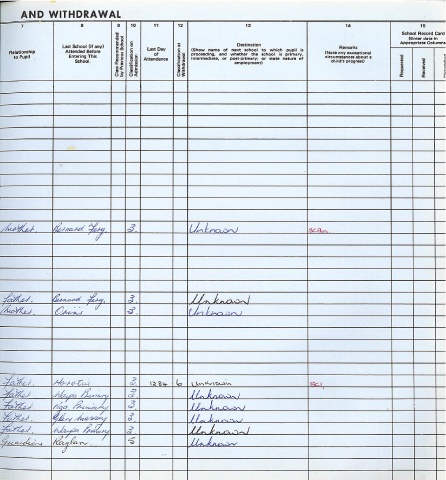 AND WITHDRAWAL
7 8 9 10 11 12 13 14 15
Relationship to Pupil
Last School (if any) Attended Before Entering This School
Class Recommended by Previous School
Classification on Admission
Last Day of Attendance
Classification at Withdrawal
Destination
(Show name of next school to which pupil is proceeding, and whether the school is primary, intermediate, or post-primary; or state nature of employment)
Remarks
(Note any exceptional circumstances about a child's progress)
School Record Card
(Enter date in Appropriate Columns
Requested
Received
Mother. Bernard 3. Unknown
Father. Bernard 3. Unknown
Mother. 3. Unknown
Father. 3. 1284 6 Unknown
Father. 3. Unknown
Father. 3. Unknown
Father. 3. Unknown
Father. 3. Unknown
Guardian Raglan. 3 Unknown